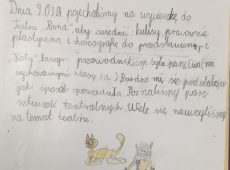 Dnia 9.03.18 pojechaliśmy na wycieczkę do
Teatru „Roma", aby zwiedzić: kulisy, pracownię
plastyczną i scenografię do przedstawienia
„Koty". Naszym przewodnikiem była pani Ewa (
wychowawczyni klasy). Bardzo mi się podobało
jaki sposób opowiadała. Poznaliśmy parę
sztuczek teatralnych. Wiele się nauczyliśmy
na temat teatru.